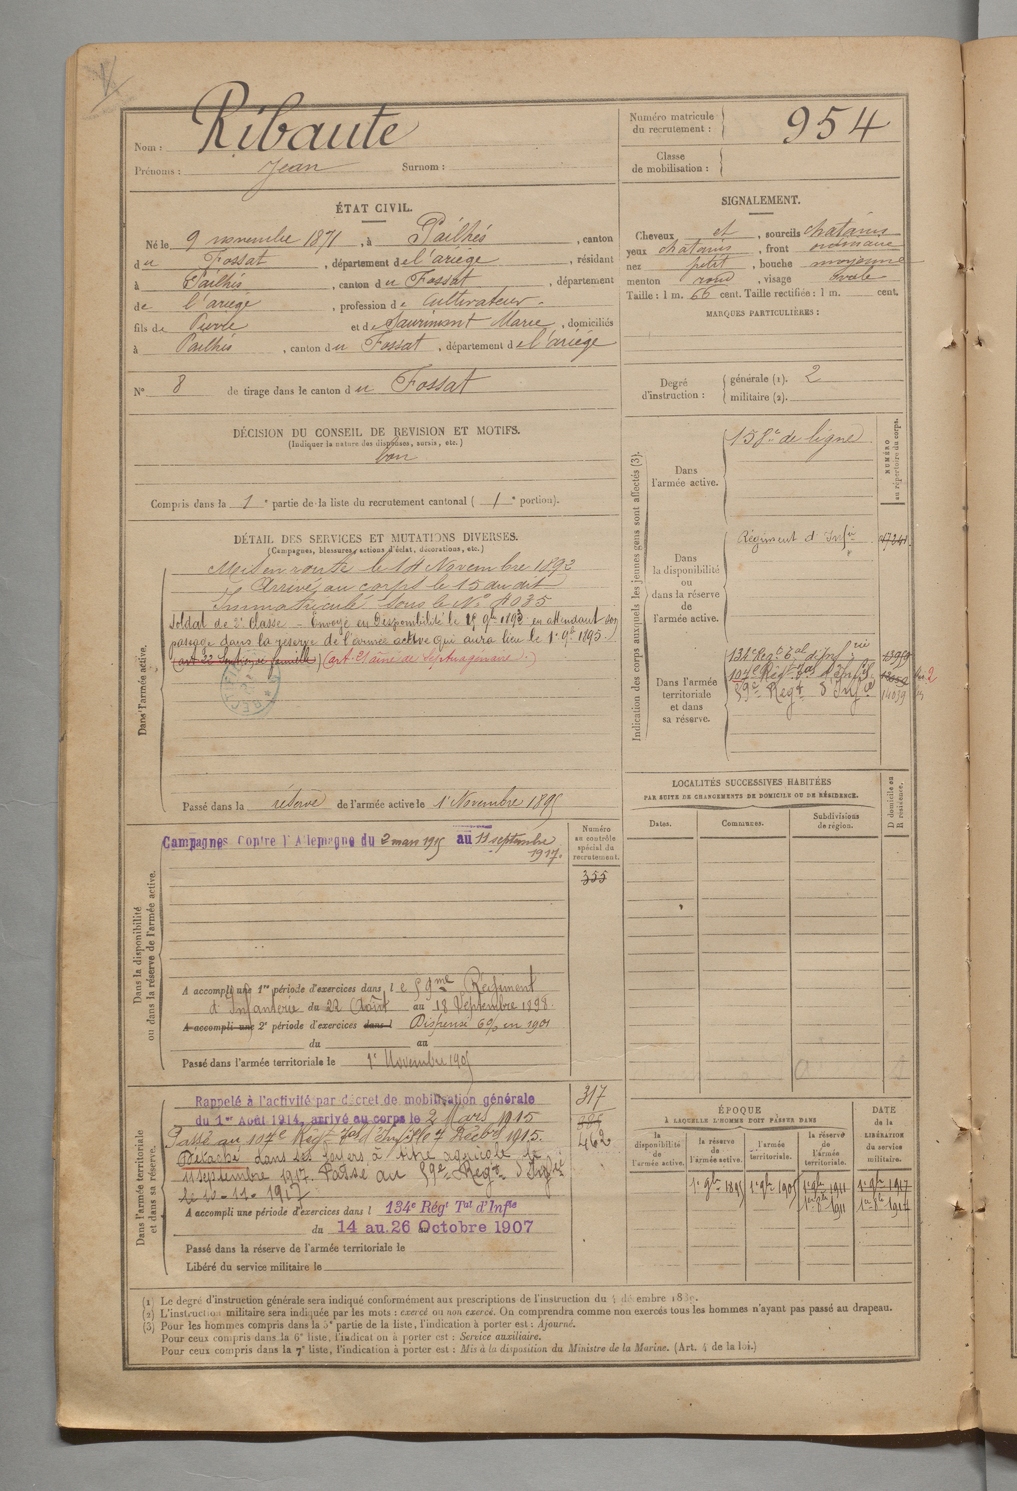 Nom : Ribaute
Prénoms : Jean Surnom :
Numéro matricule du recrutement : 954
Classe de mobilisation :
ÉTAT CIVIL.
Né le 9 novembre 1871, à Pailhès, canton
du Fossat, département de l'ariège, résidant
à Pailhès, canton du Fossat, département
de l'ariège, profession de Cultivateur.
fils de Pierre et de Saurimont Marie, domiciliés
à Pailhès, canton du Fossat, département de l'ariège
N° 8 de tirage dans le canton du Fossat
SIGNALEMENT.
Cheveux et, sourcils chatains
yeux chatains, front ordinaire
nez petit, bouche moyenne
menton rond, visage ovale
Taille : 1 m. 66 cent. Taille rectifiée : 1 m. cent.
MARQUES PARTICULIÈRES :
Degré d'instruction :
générale (1). 2
militaire (2).
DÉCISION DU CONSEIL DE REVISION ET MOTIFS.
(Indiquer la nature des dispenses, sursis, etc.)
bon
Compris dans la 1e partie de la liste du recrutement cantonal (1e portion).
DÉTAIL DES SERVICES ET MUTATIONS DIVERSES.
(Campagnes, blessures, actions d'éclat, décorations, etc.)
Dans l'armée active.
Mis en route le 14 Novembre 1892
Arrivé au corps le 15 du dit
Immatriculé sous le N° 4035
Soldat de 2e Classe - Envoyé en Disponibilité le 9bre 1893 en attendant son
passage dans la réserve de l'armée active qui aura lieu le 1er 9bre 1895.
(art. 22 Soutien de famille) (art. 21 aîné de Septuagénaire.)
Passé dans la réserve de l'armée active le 1er Novembre 1895
Indication des corps auxquels les jeunes gens sont affectés (3).
NUMÉRO au répertoire du corps.
Dans l'armée active.
158e de ligne
Dans la disponibilité ou dans la réserve de l'armée active.
Régiment d'Infie
Dans l'armée territoriale et dans sa réserve.
134e Régt Tal d'Infrie
107e Régt Tal d'Infie
59e Régt d'Infie 14039
LOCALITÉS SUCCESSIVES HABITÉES
PAR SUITE DE CHANGEMENTS DE DOMICILE OU DE RÉSIDENCE.
Dates. Communes. Subdivisions de région. D domicile ou R résidence.
Dans la disponibilité ou dans la réserve de l'armée active.
Campagnes Contre l'Allemagne du 2 mars 1915 au 11 septembre
1917.
Numéro au contrôle spécial du recrutement.
355
A accompli une 1re période d'exercices dans le 59me Régiment
d'Infanterie du 22 Août au 18 Septembre 1898.
A accompli une 2e période d'exercices dans l Dispensé 6% en 1901
du au
Passé dans l'armée territoriale le 1er Novembre 1905
Dans l'armée territoriale et dans sa réserve.
Rappelé à l'activité par décret de mobilisation générale
du 1er Août 1914, arrivé au corps le 2 Mars 1915
Passé au 107e Régt Tal d'Infie le 7 1915.
Détaché dans ses foyers à titre agricole le
11 septembre 1917. Passé au 59e Régt d'Infie
le 10-11-1917
A accompli une période d'exercices dans l 134e Régt Tal d'Infie
du 14 au 26 Octobre 1907
Passé dans la réserve de l'armée territoriale le
Libéré du service militaire le
317
462
ÉPOQUE
À LAQUELLE L'HOMME DOIT PASSER DANS
la disponibilité de l'armée active. la réserve de l'armée active. l'armée territoriale. la réserve de l'armée territoriale.
DATE de la LIBÉRATION du service militaire.
1er 9bre 1895 1er 9bre 1905 1er 9bre 1911 1er 9bre 1917
(1) Le degré d'instruction générale sera indiqué conformément aux prescriptions de l'instruction du 4 décembre 1889.
(2) L'instruction militaire sera indiquée par les mots : exercé ou non exercé. On comprendra comme non exercés tous les hommes n'ayant pas passé au drapeau.
(3) Pour les hommes compris dans la 5e partie de la liste, l'indication à porter est : Ajourné.
Pour ceux compris dans la 6e liste, l'indication à porter est : Service auxiliaire.
Pour ceux compris dans la 7e liste, l'indication à porter est : Mis à la disposition du Ministre de la Marine. (Art. 4 de la loi.)